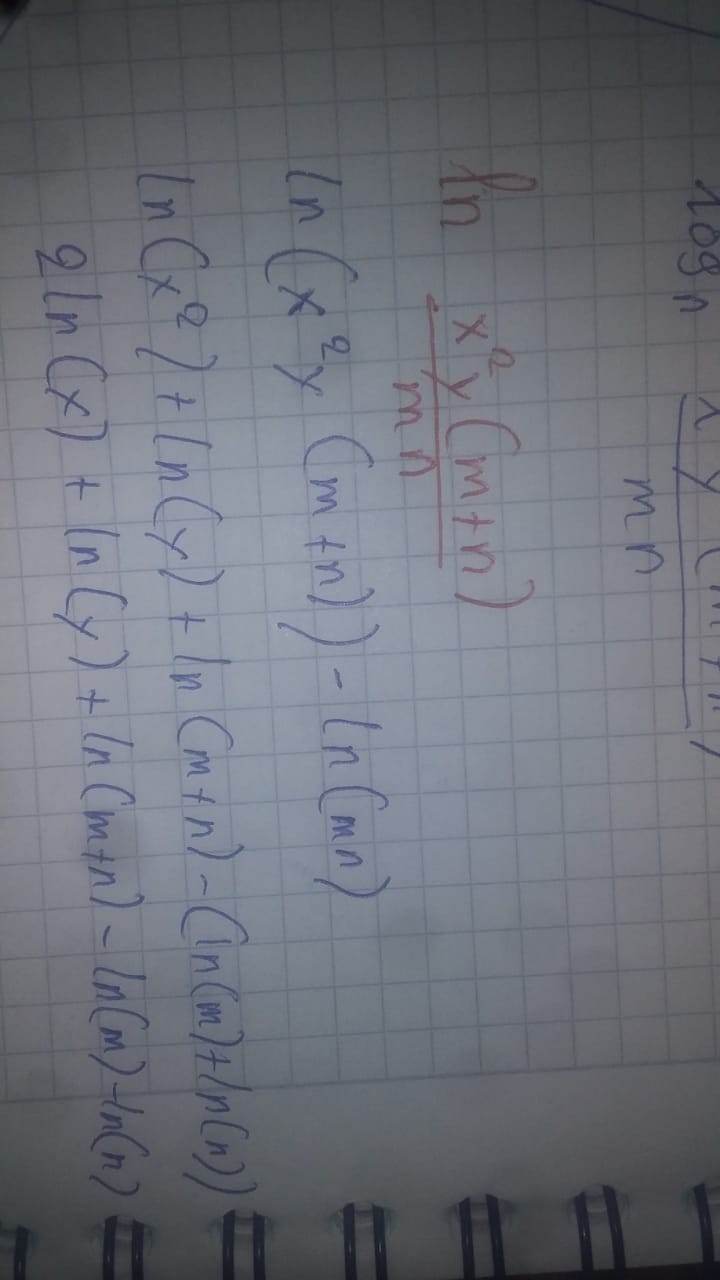 log n
x y (m + n)
mn
ln x²y(m+n)
mn
ln(x²y (m+n)) - ln(mn)
ln(x²) + ln(y) + ln(m+n) - (ln(m)+ln(n))
2ln(x) + ln(y) + ln(m+n) - ln(m)-ln(n)